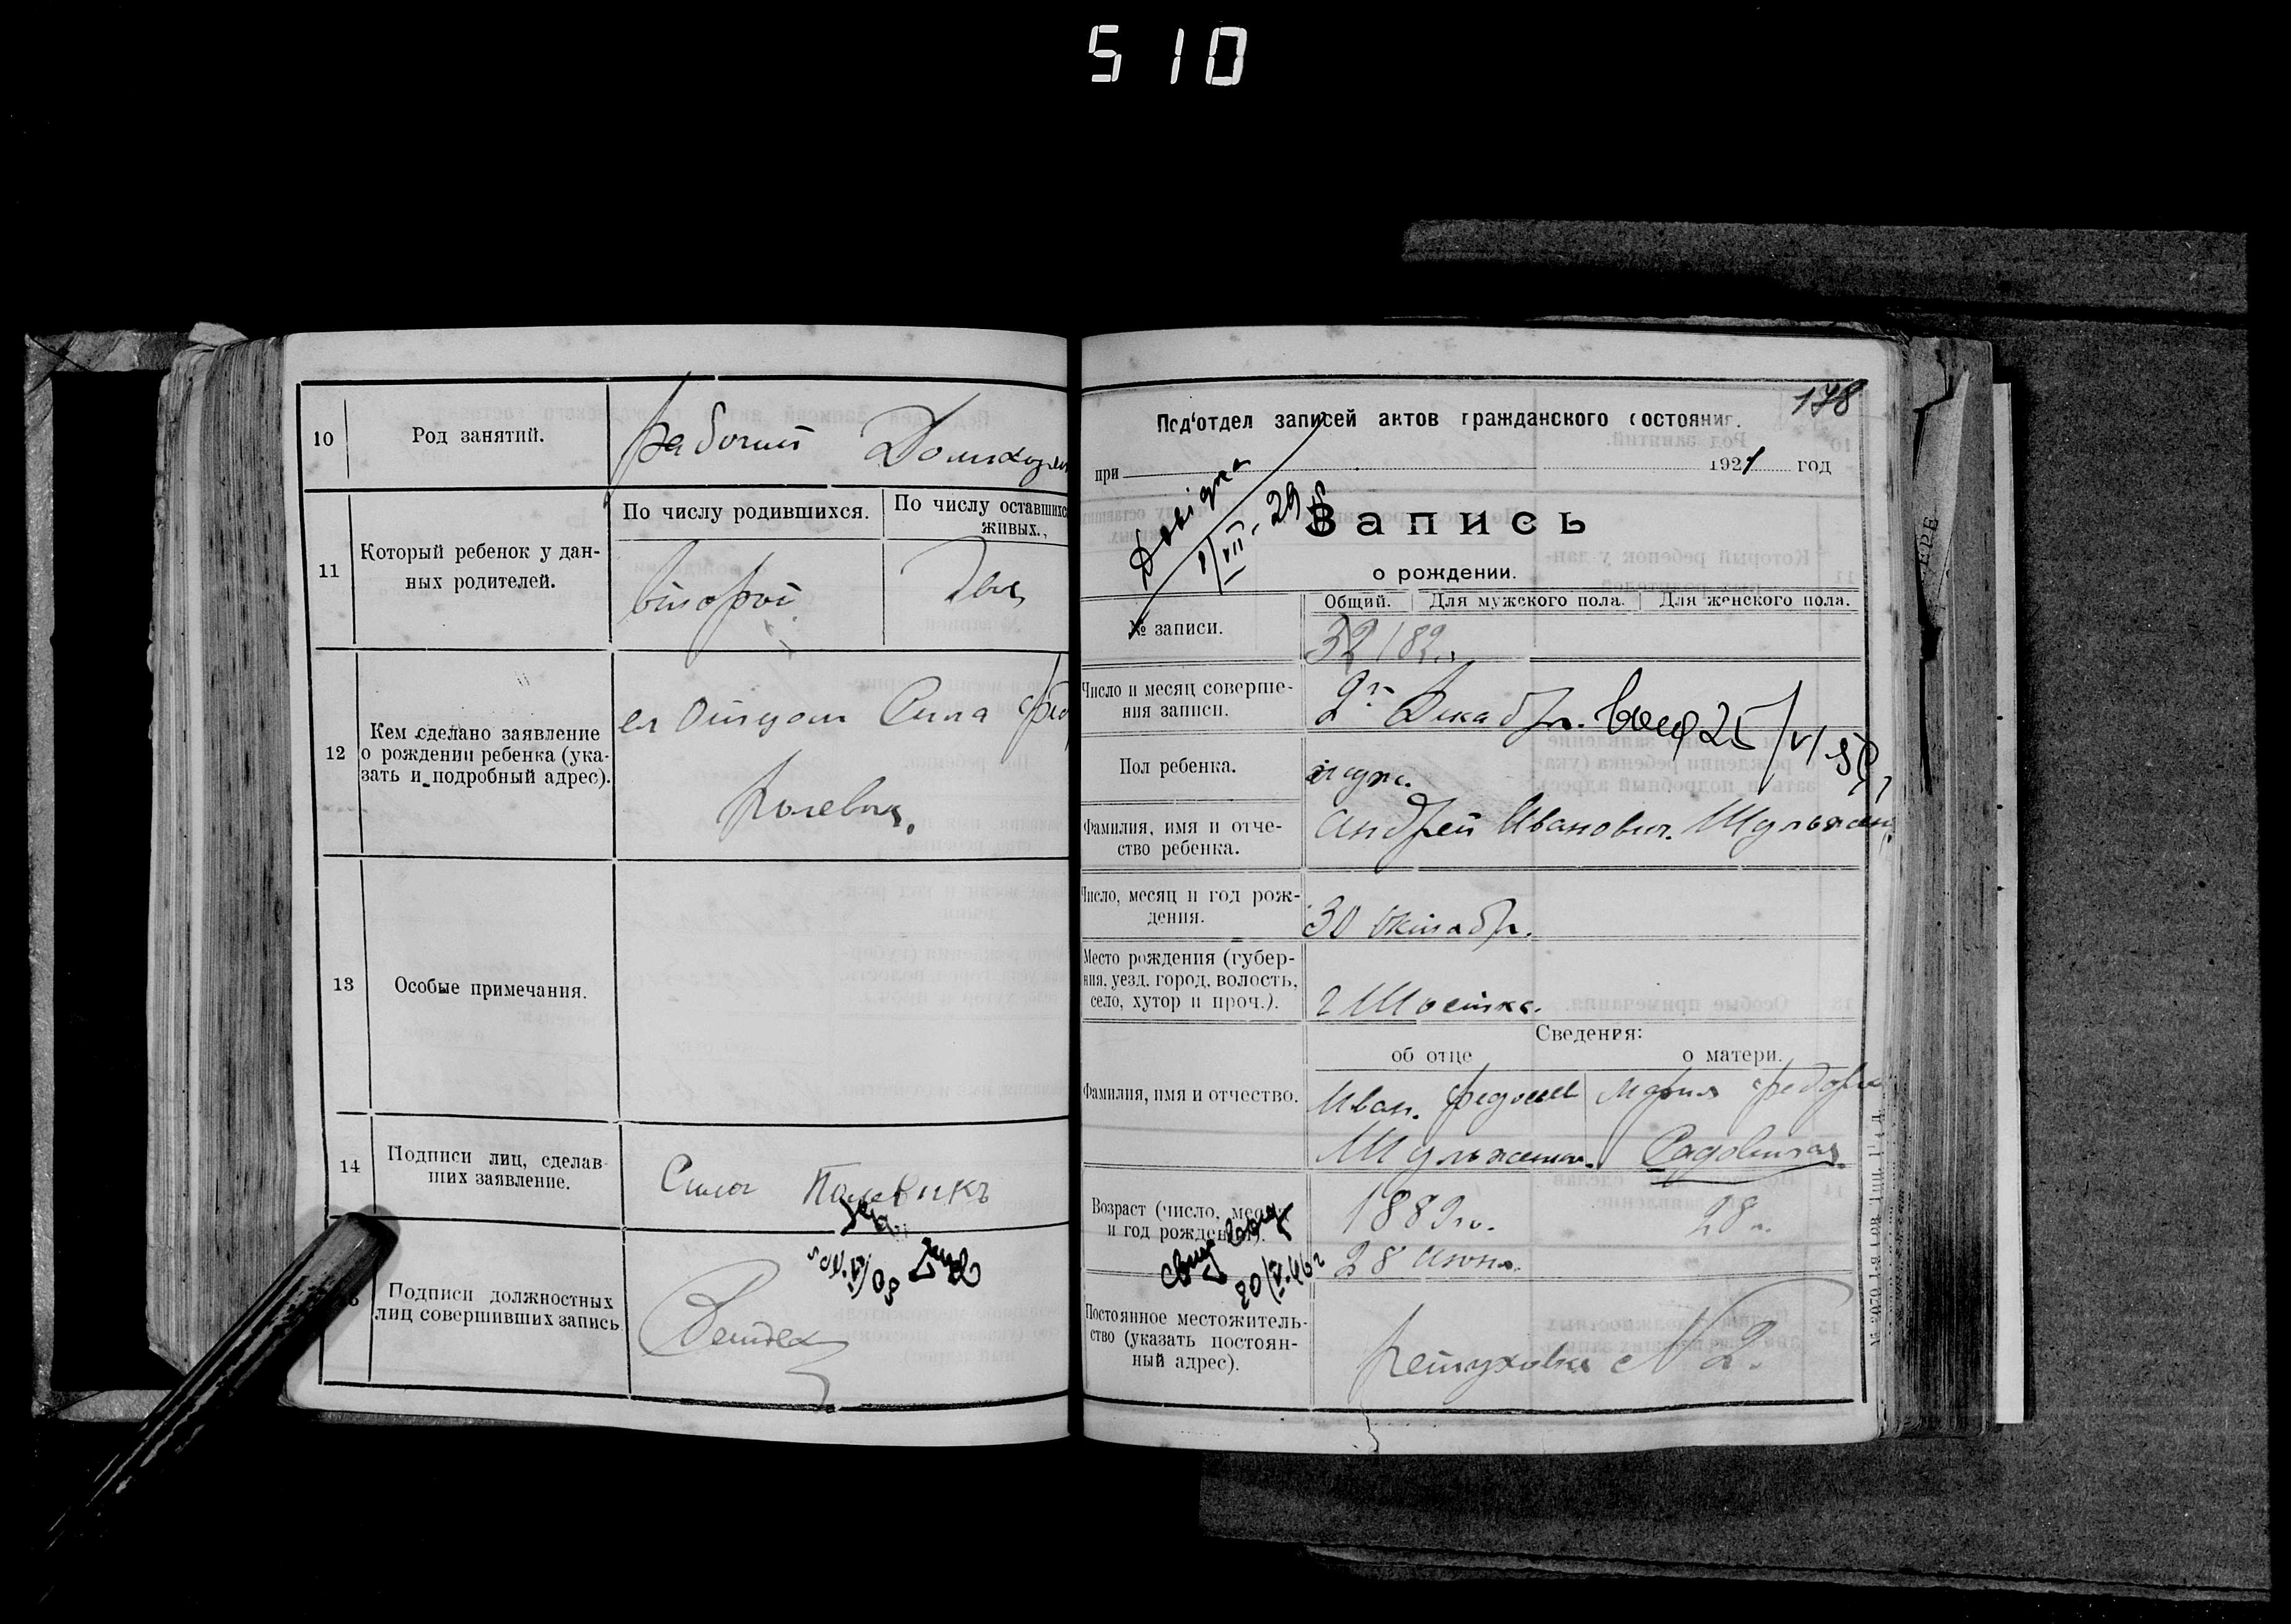 510
10 Род занятий. рабочий Домохозя
11 Который ребенок у дан-
ных родителей.
По числу родившихся. По числу оставшихс
живых.
второй Два
12 Кем сделано заявление
о рождении ребенка (ука-
зать и подробный адрес).
ел отцом Сила Фед
Полевик.
13 Особые примечания.
14 Подписи лиц, сделав
ших заявление.
Сила Полевикъ
Подписи должностных
лиц совершивших запись
178
Под'отдел записей актов гражданского состояния.
при 1921 год
Запись
о рождении.
Общий. Для мужского пола. Для женского пола.
№ записи. 32182
Число и месяц соверше-
ния записи.
2го Декабр. 25/V/
Пол ребенка. муж.
Фамилия, имя и отче-
ство ребенка.
Андрей Иванович Шульжен
Число, месяц и год рож-
дения.
30 октябр.
Место рождения (губер-
ния, уезд, город, волость,
село, хутор и проч.).
г Шостка.
Сведения:
об отце о матери.
Фамилия, имя и отчество.
Иван Мария Федоров
Шульженко. Садовская
Возраст (число, месяц
и год рождения).
1889 го. 28 л.
28 июня.
20/V.46 г
Постоянное местожитель-
ство (указать постоян-
ный адрес).
Петуховка № 2.